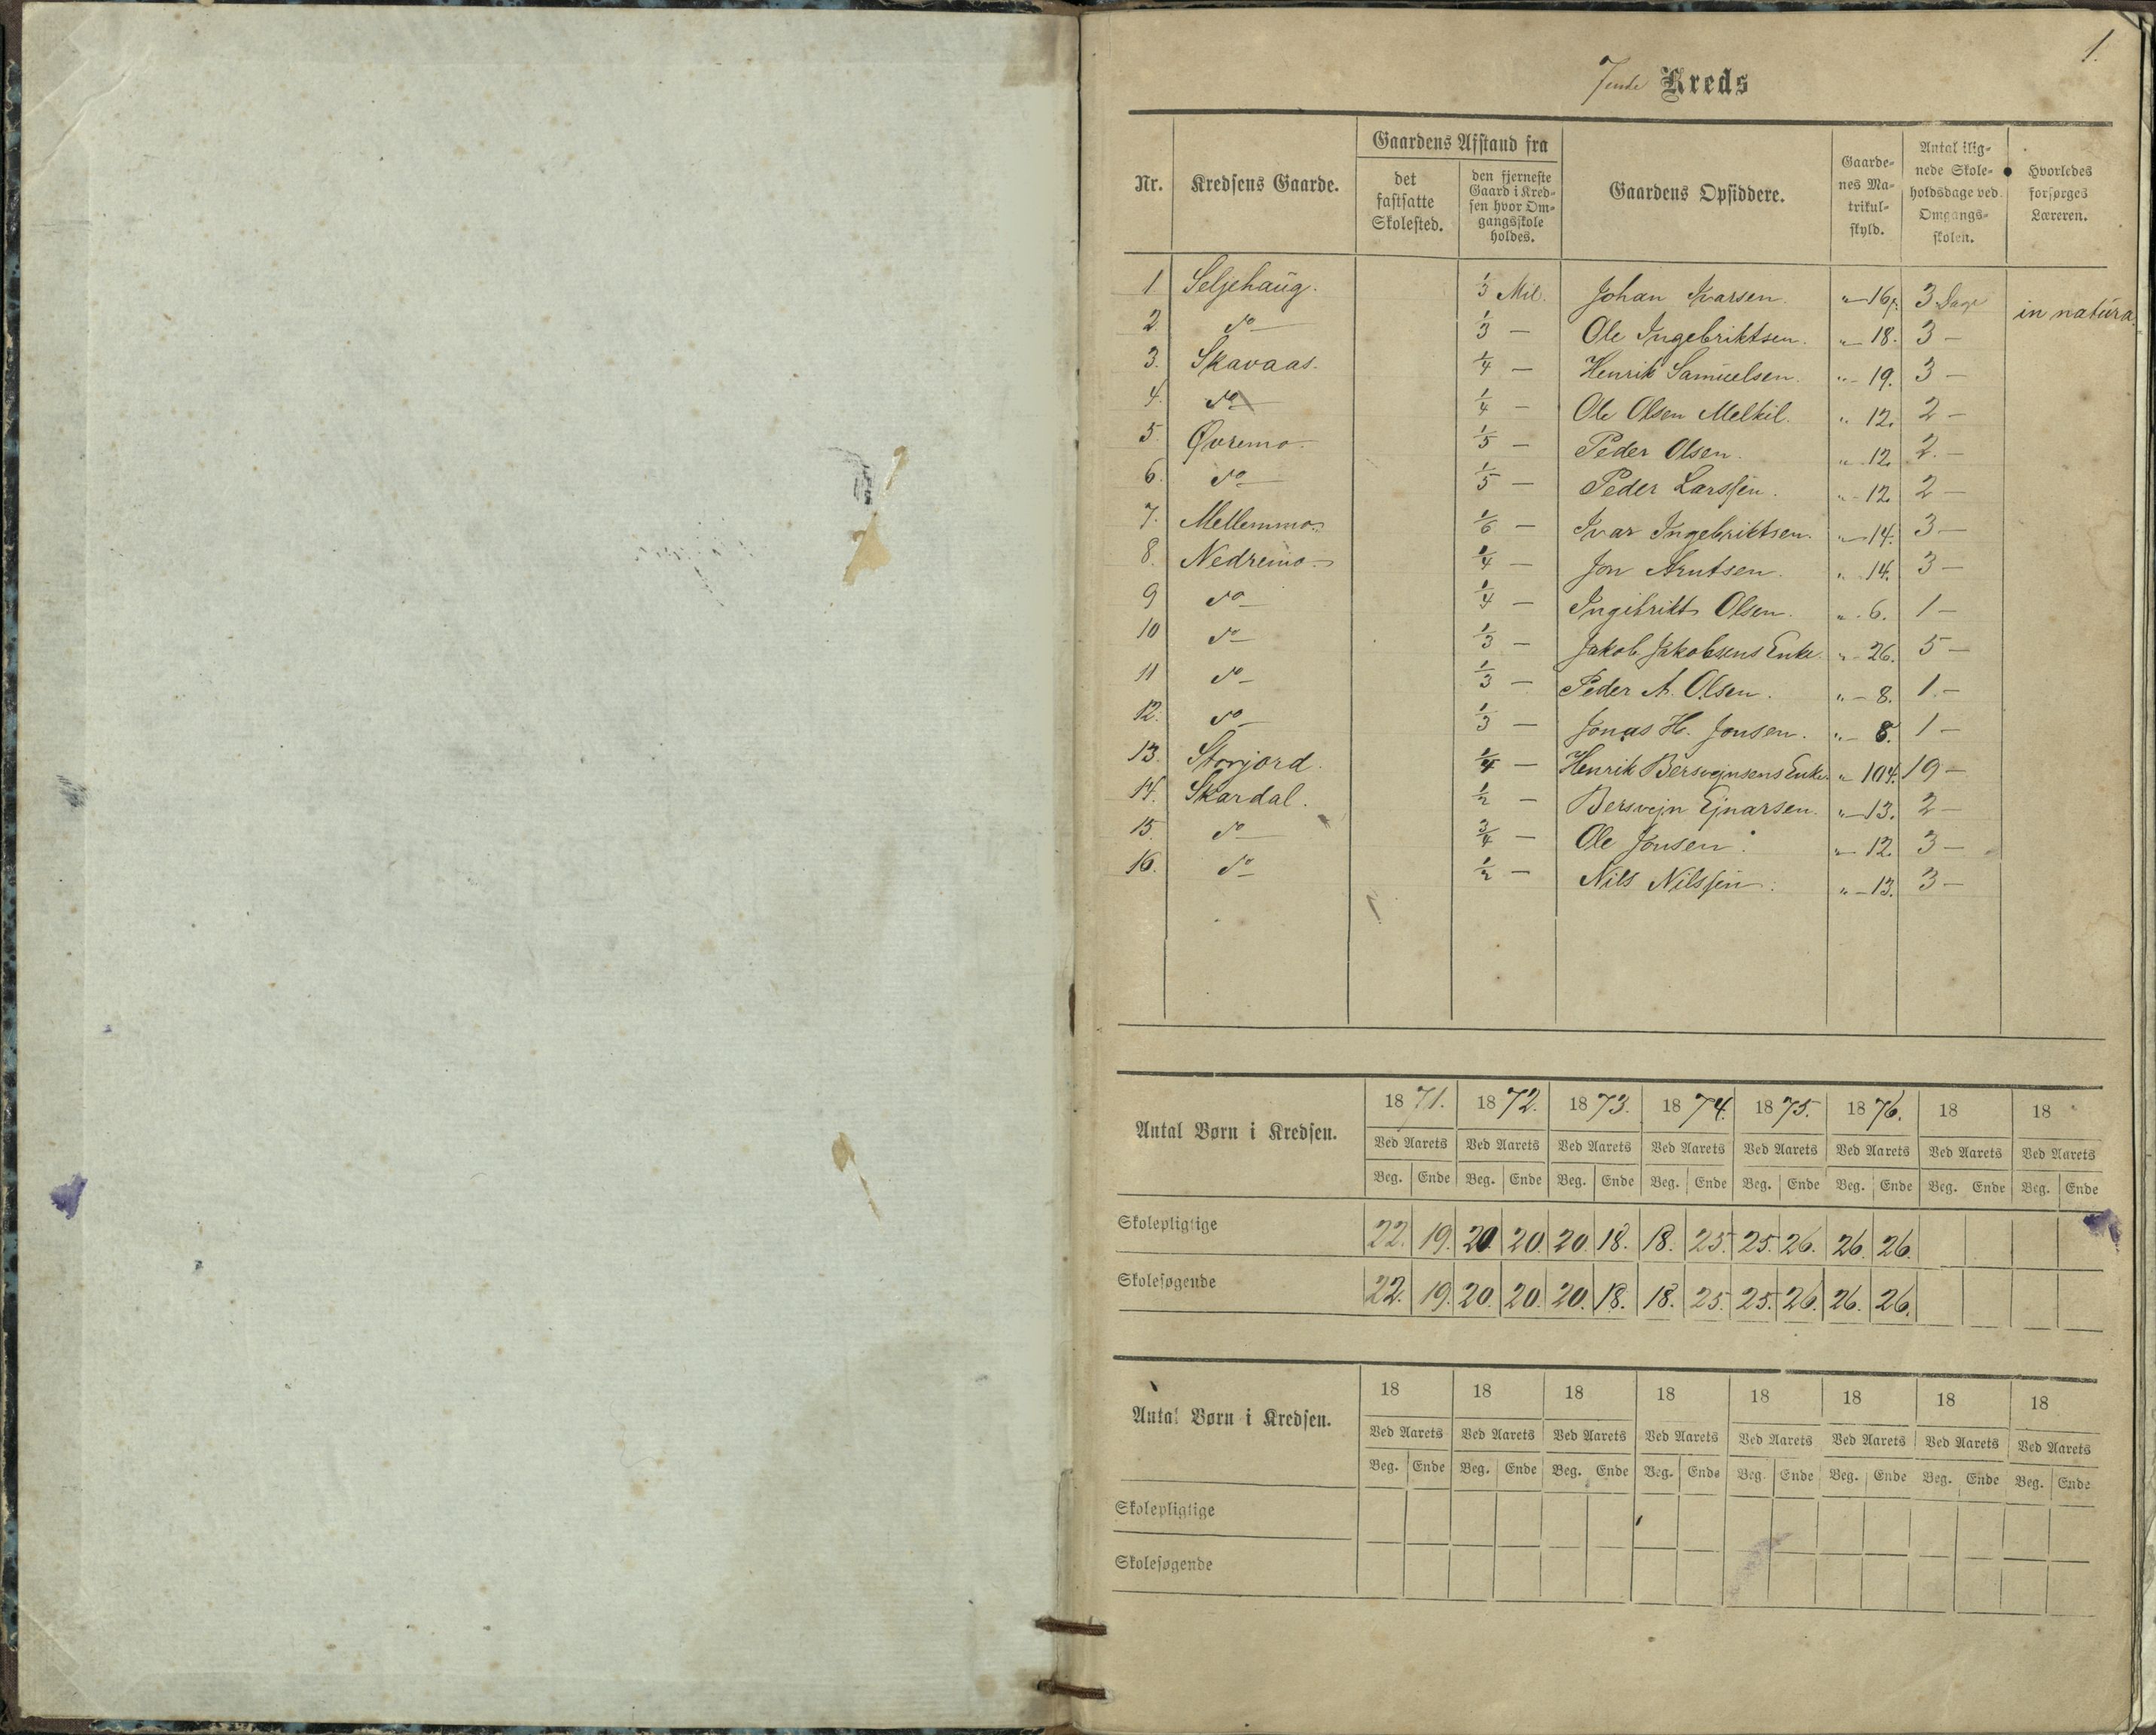 1.
7ende Kreds
Nr. Kredsens Gaarde. Gaardens Afstand fra det fastsatte Skolested. den fjerneste Gaard i Kredsen hvor Omgangsskole holdes. Gaardens Opsiddere. Gaardenes Matrikulskyld. Antal ilignede Skoleholdsdage ved Omgangsskolen. Hvorledes forsørges Læreren.
1 Seljehaug. 1/3 Mil. Johan Ivarsen. "-16ß. 3 Dage in natura.
2 do 1/3 - Ole Ingebriktsen. "-18. 3 -
3. Skavaas. 1/4 - Henrik Samuelsen. "-19. 3 -
4. do 1/4 - Ole Olsen Melkil. " 12. 2 -
5. Øvremo. 1/5 - Peder Olsen. "-12. 2. -
6. do 1/5 - Peder Larssen. "-12. 2 -
7. Mellemmo. 1/6 - Ivar Ingebriktsen. "-14. 3 -
8. Nedremo. 1/4 - Jon Arntsen. "-14. 3 -
9 do 1/4 - Ingebrikt Olsen. "-6. 1 -
10 do 1/3 - Jakob Jakobsens Enke. "-26. 5 -
11 do 1/3 - Peder A. Olsen. "-8. 1. -
12. do 1/3 - Jonas H. Jonsen. "-8. 1 -
13. Storjord. 1/4 - Henrik Bersvejnsens Enke. " 104. 19 -
14. Skardal. 1/2 - Bersvejn Ejnarsen. "-13. 2 -
15. do 3/4 - Ole Jonsen. "-12. 3 -
16. do 1/2 - Nils Nilssen. "-13. 3 -
Antal Børn i Kredsen. 1871. 1872. 1873. 1874. 1875. 1876. 18 18
Ved Aarets Ved Aarets Ved Aarets Ved Aarets Ved Aarets Ved Aarets Ved Aarets Ved Aarets
Beg. Ende Beg. Ende Beg. Ende Beg. Ende Beg. Ende Beg. Ende Beg. Ende Beg. Ende
Skolepligtige 22. 19. 20 20. 20. 18. 18. 25. 25. 26. 26. 26.
Skolesøgende 22. 19. 20. 20. 20. 18. 18. 25. 25. 26. 26. 26.
Antal Børn i Kredsen. 18 18 18 18 18 18 18 18
Ved Aarets Ved Aarets Ved Aarets Ved Aarets Ved Aarets Ved Aarets Ved Aarets Ved Aarets
Beg. Ende Beg. Ende Beg. Ende Beg. Ende Beg. Ende Beg. Ende Beg. Ende Beg. Ende
Skolepligtige
Skolesøgende